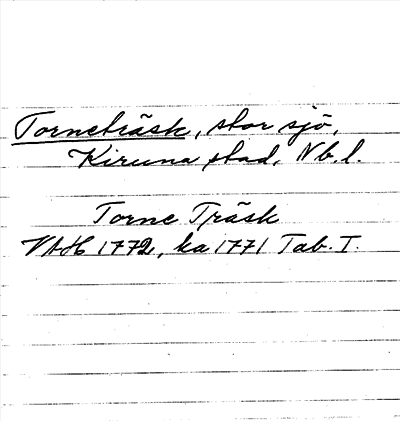 Torneträsk, stor sjö,
Kiruna stad, Nb.l.
Torne Träsk
VAH 1772, ka 1771 Tab. I.